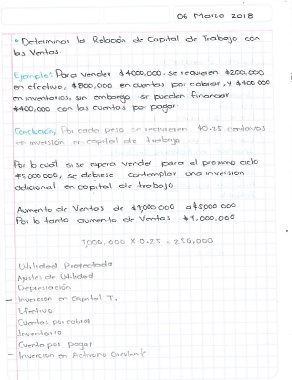 06 Marzo 2018
• Determinar la Relación de Capital de Trabajo con
las Ventas.
Ejemplo: Para vender $4000,000, se requieren $200,000
en efectivo, $800,000 en cuentas por cobrar, y $400 000
en inventarios, sin embargo se pueden financiar
$400,000 con las cuentas por pagar.
Conclusión, Por cada peso se requieren $0.25 centavos
en inversión en capital de trabajo
Por lo cual si se espera vender para el proximo ciclo
$5 000 000, se debiese contemplar una inversion
adicional en capital de trabajo
Aumento de Ventas de $4,000 000 a $5 000 000
Por lo tanto aumento de Ventas $1,000,000
1,000,000 X 0.25 = 250,000
Utilidad Proyectada
Ajustes de Utilidad
Depreciación
– Inversion en Capital T.
Efectivo
Cuentas por cobrar
Inventario
Cuenta por pagar
– Inversion en Activo